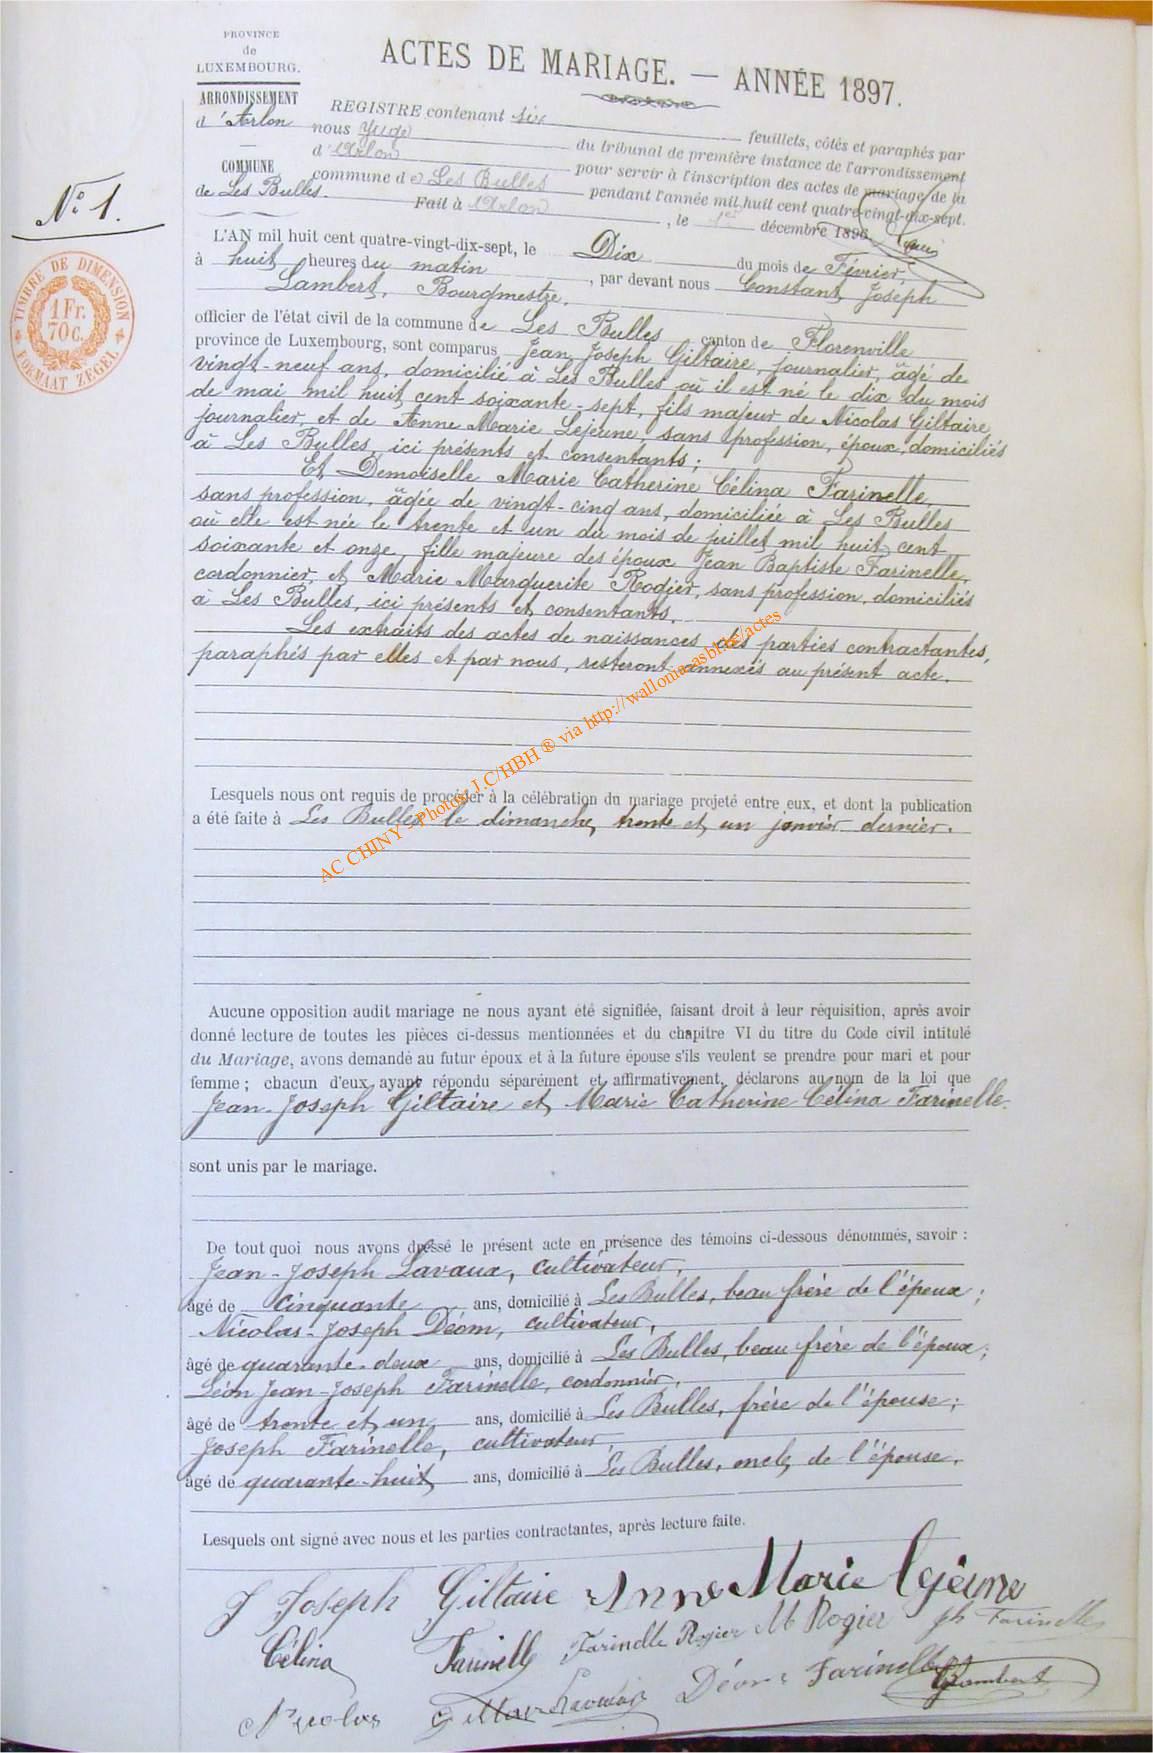 PROVINCE
de
LUXEMBOURG.
ARRONDISSEMENT
d'Arlon
COMMUNE
de Les Bulles.
ACTES DE MARIAGE. — ANNÉE 1897.
REGISTRE contenant six feuillets, côtés et paraphés par
nous Juge du tribunal de première instance de l'arrondissement
d'Arlon pour servir à l'inscription des actes de mariage de la
commune de Les Bulles pendant l'année mil huit cent quatre-vingt-dix-sept.
Fait à Arlon, le 1er décembre 1896.
N° 1.
TIMBRE DE DIMENSION
1 Fr.
70 c.
FORMAAT ZEGEL
L'AN mil huit cent quatre-vingt-dix-sept, le Dix du mois de Février,
à huit heures du matin, par devant nous Constant Joseph
Lambert, Bourgmestre,
officier de l'état civil de la commune de Les Bulles canton de Florenville
province de Luxembourg, sont comparus Jean Joseph Giltaire, journalier, âgé de
vingt-neuf ans, domicilié à Les Bulles où il est né le dix du mois
de mai mil huit cent soixante-sept, fils majeur de Nicolas Giltaire
journalier, et de Anne Marie Lejeune, sans profession, époux, domiciliés
à Les Bulles, ici présents et consentants;
Et Demoiselle Marie Catherine Célina Farinelle,
sans profession, âgée de vingt-cinq ans, domiciliée à Les Bulles
où elle est née le trente et un du mois de juillet mil huit cent
soixante et onze, fille majeure des époux Jean Baptiste Farinelle,
cordonnier, et Marie Marguerite Rogier, sans profession, domiciliés
à Les Bulles, ici présents et consentants.
Les extraits des actes de naissances des parties contractantes,
paraphés par elles et par nous, resteront annexés au présent acte.
AC CHINY - Photos J.C/HBH ® via http://wallonia-asbl.be/actes
Lesquels nous ont requis de procéder à la célébration du mariage projeté entre eux, et dont la publication
a été faite à Les Bulles le dimanche, trente et un janvier dernier.
Aucune opposition audit mariage ne nous ayant été signifiée, faisant droit à leur réquisition, après avoir
donné lecture de toutes les pièces ci-dessus mentionnées et du chapitre VI du titre du Code civil intitulé
du Mariage, avons demandé au futur époux et à la future épouse s'ils veulent se prendre pour mari et pour
femme ; chacun d'eux ayant répondu séparément et affirmativement, déclarons au nom de la loi que
Jean-Joseph Giltaire et Marie Catherine Célina Farinelle.
sont unis par le mariage.
De tout quoi nous avons dressé le présent acte en présence des témoins ci-dessous dénommés, savoir :
Jean-Joseph Lavaux, cultivateur,
âgé de cinquante ans, domicilié à Les Bulles, beau frère de l'époux ;
Nicolas-Joseph Déom, cultivateur,
âgé de quarante-deux ans, domicilié à Les Bulles, beau frère de l'époux ;
Léon Jean-Joseph Farinelle, cordonnier,
âgé de trente et un ans, domicilié à Les Bulles, frère de l'épouse ;
Joseph Farinelle, cultivateur,
âgé de quarante-huit ans, domicilié à Les Bulles, oncle de l'épouse.
Lesquels ont signé avec nous et les parties contractantes, après lecture faite.
J Joseph Giltaire Anne Marie Lejeune
Célina Farinelle Farinelle Rogier M Rogier Jh Farinelle
Nicolas Giltaire Lavaux Déom Farinelle Lambert